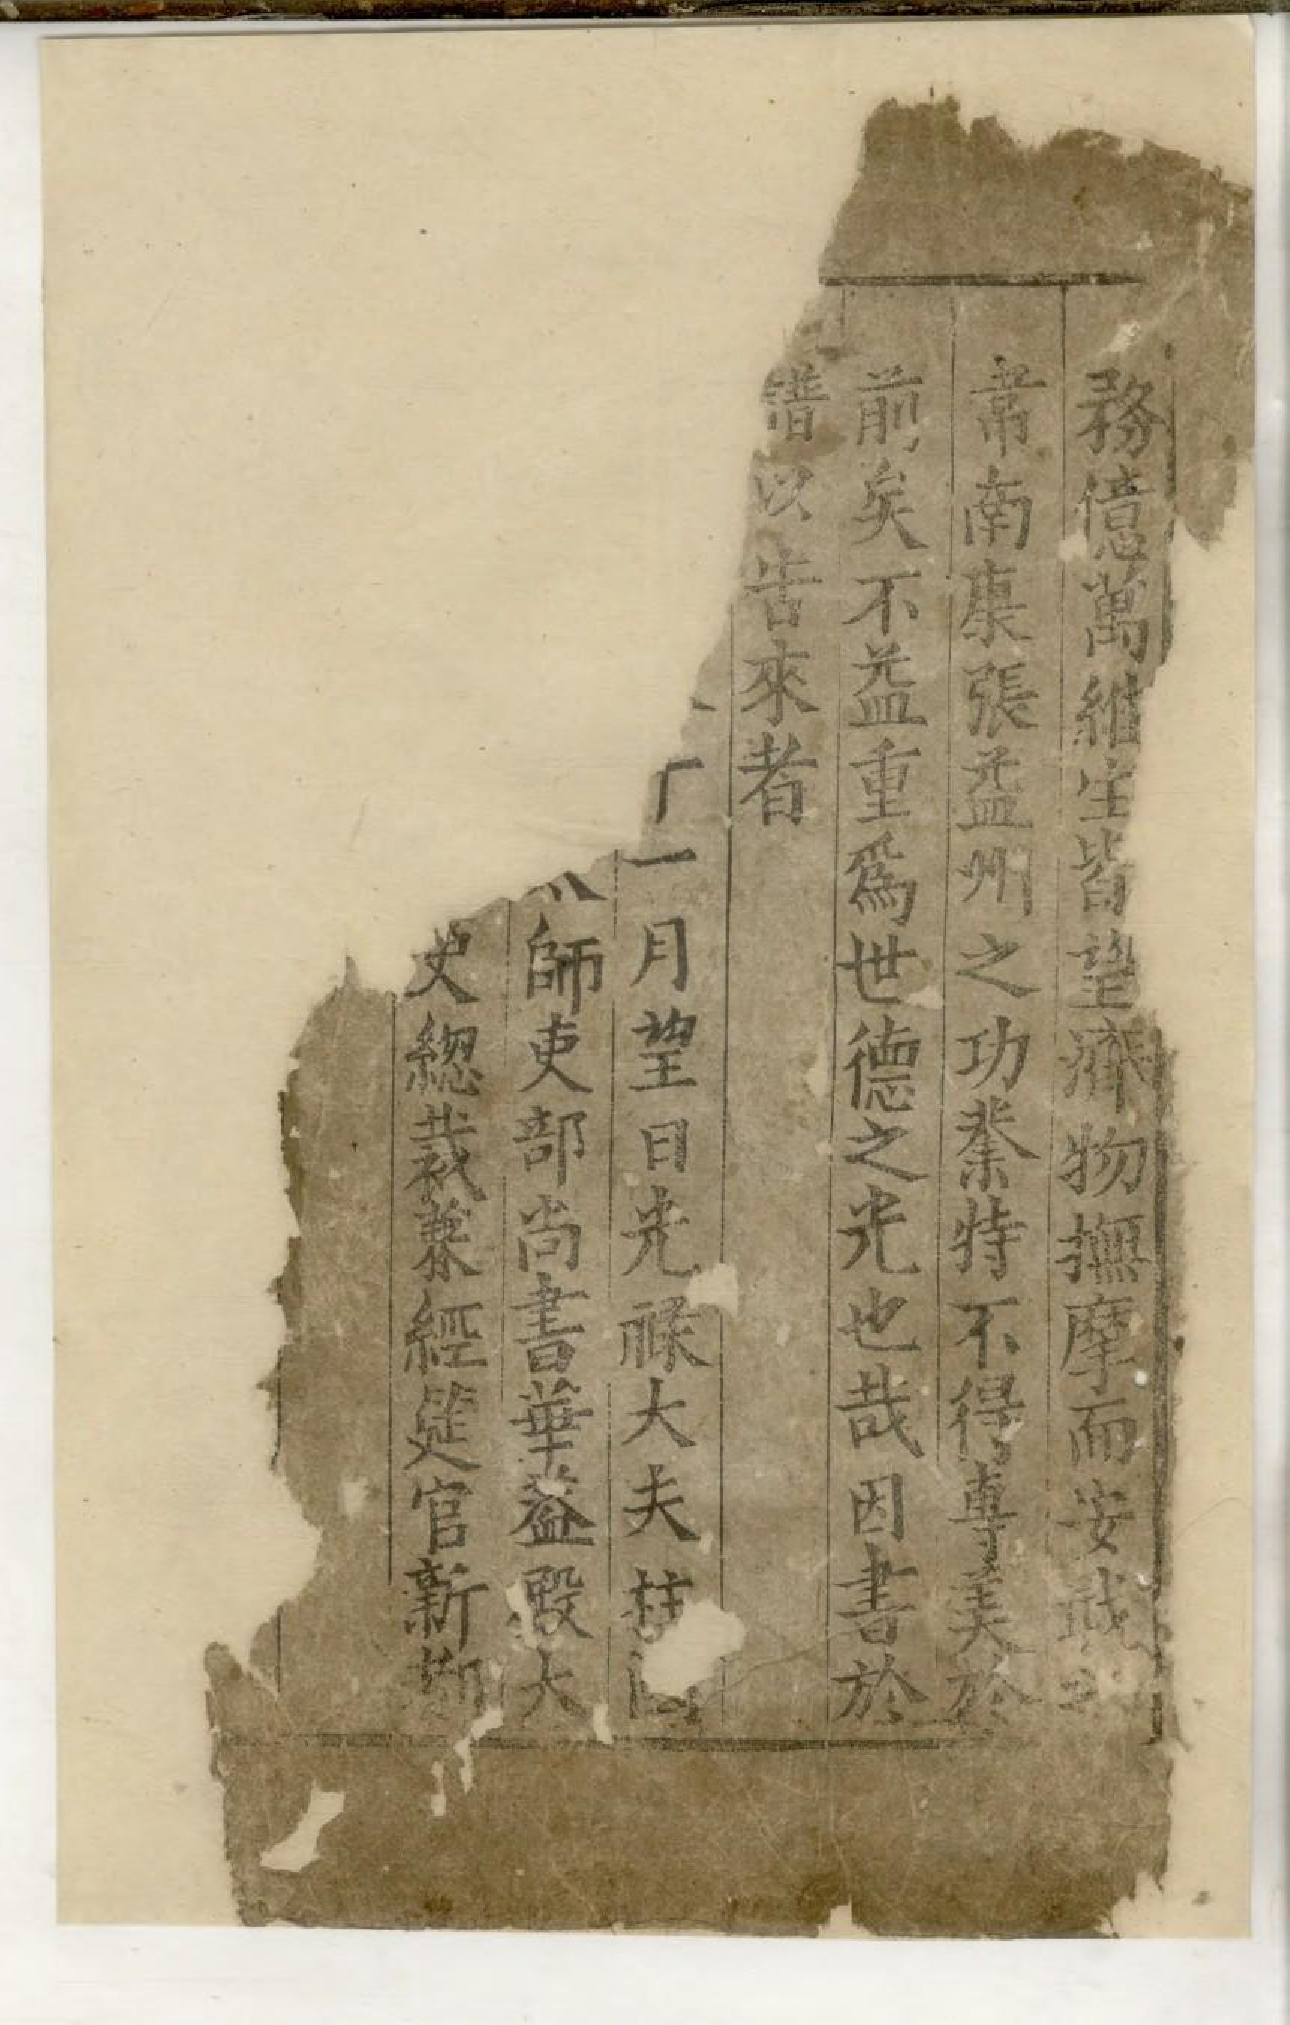 務億萬維生皆望濟物撫摩而安戢之
韋南康張益州之功業特不得專美於
前矣不益重爲世德之光也哉因書於
譜以告來者
一月望日光禄大夫柱
師吏部尚書華蓋殿大
史總裁兼經筵官新都